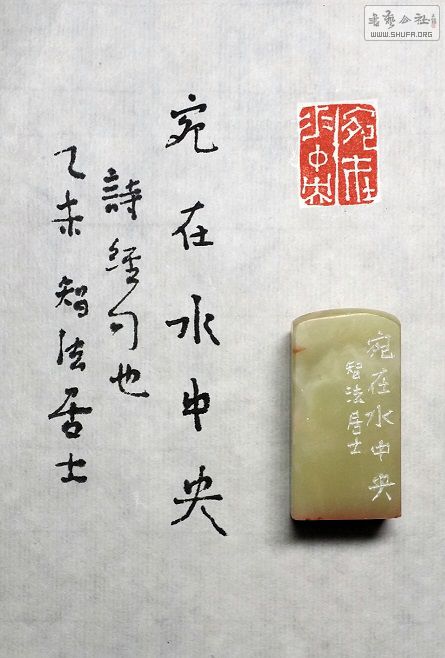 宛在水中央
詩經句也
乙未智法居士
宛在水中央
宛在水中央
智法居士
书艺公社
WWW.SHUFA.ORG